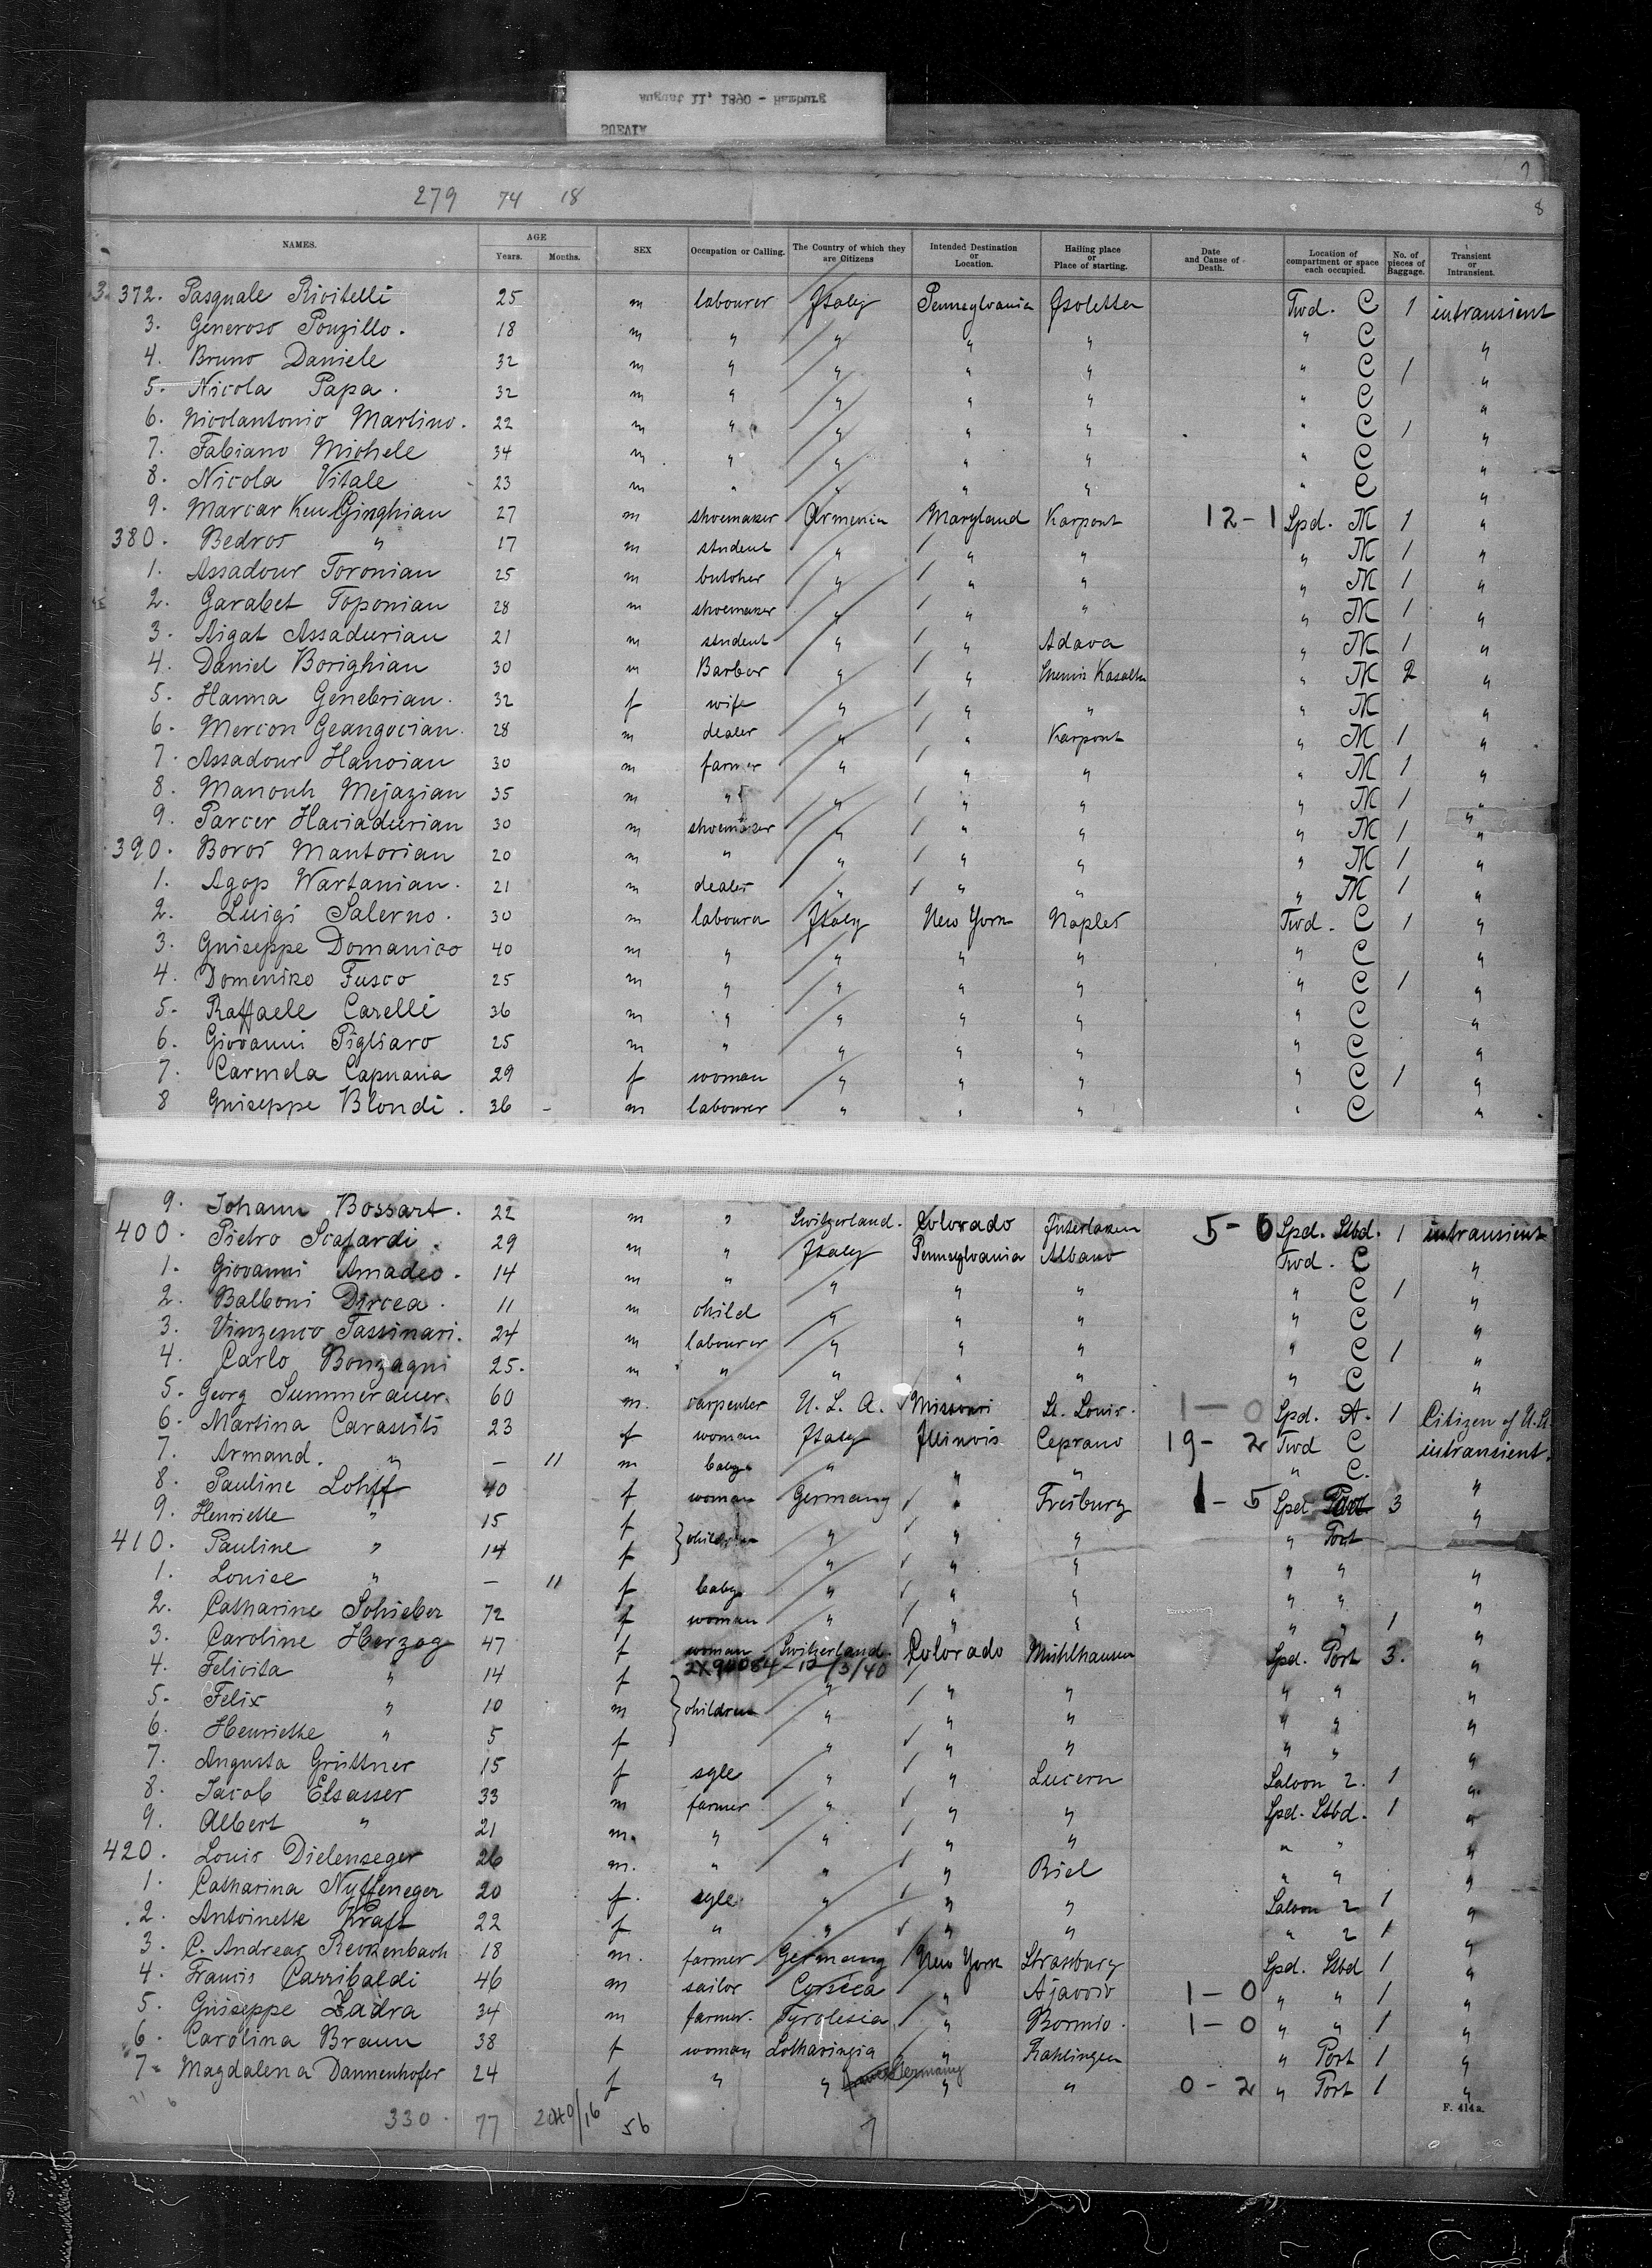 August 11, 1890 - Hamburg
SUEVIA
7
279 74 18
8
NAMES. AGE Years. Months. SEX Occupation or Calling. The Country of which they are Citizens Intended Destination or Location. Hailing place or Place of starting. Date and Cause of Death. Location of compartment or space each occupied. No. of pieces of Baggage. Transient or Intransient.
372. Pasquale Rivitelli 25 m labourer Italy Pennsylvania Isoletta Twd. C 1 intransient
3. Generoso Ponzillo. 18 m " " " " " C "
4. Bruno Daniele 32 m " " " " " C 1 "
5. Nicola Papa. 32 m " " " " " C "
6. Nicolantonio Martino. 22 m " " " " " C 1 "
7. Fabiano Michele 34 m " " " " " C "
8. Nicola Vitale 23 m " " " " " C "
9. Marcar Keulginghian 27 m shoemaker Armenia Maryland Karpout 12-1 Spd. M 1 "
380. Bedros " 17 m student " " " " M 1 "
1. Assadour Toronian 25 m butcher " " " " M 1 "
2. Garabet Toponian 28 m shoemaker " " " " M 1 "
3. Aigat Assadurian 21 m student " " Adava " M 1 "
4. Daniel Borighian 30 m Barber " " " M 2 "
5. Hanna Genebrian. 32 f wife " " " " M "
6. Mercon Geangocian. 28 m dealer " " Karpout " M 1 "
7. Assadour Hanoian 30 m farmer " " " " M 1 "
8. Manouk Mejazian 35 m " " " " " M 1 "
9. Parcer Haciadurian 30 m shoemaker " " " " M 1 "
390. Boros Mantorian 20 m " " " " " M 1 "
1. Agop Wartanian. 21 m dealer " " " " M 1 "
2. Luigi Salerno. 30 m labourer Italy New York Naples Twd. C 1 "
3. Guiseppe Domanico 40 m " " " " " C "
4. Domenico Fusco 25 m " " " " " C 1 "
5. Raffaele Carelli 36 m " " " " " C "
6. Giovanni Pigliaro 25 m " " " " " C "
7. Carmela Capuana 29 f woman " " " " C 1 "
8 Guiseppe Blondi. 36 - m labourer " " " " C "
9. Johann Bossart. 22 m " Switzerland. Colorado Interlaken 5-0 Spd. Stbd. 1 intransient
400. Pietro Scafardi. 29 m " Italy Pennsylvania Albano Twd. C "
1. Giovanni Amadeo. 14 m " " " " " C 1 "
2. Balboni Dircea. 11 m child " " " " C "
3. Vinzenco Tassinari. 24 m labourer " " " " C 1 "
4. Carlo Bonzagni 25. m " " " " " C "
5. Georg Summerauer. 60 m. carpenter U. S. A. Missouri St. Louis. 1-0 Spd. A. 1 Citizen of U.S.
6. Martina Carassiti 23 f woman Italy Illinois Ceprano 19-2 Twd C intransient.
7. Armand. " - 11 m baby " " " " C. "
8. Pauline Lohff 40 f woman Germany " Freiburg 1-5 Spd Port 3 "
9. Henriette " 15 f } children " " " " Port
410. Pauline " 14 f " " " " " "
1. Louise " - 11 f baby " " " " " "
2. Catharine Schieber 72 f woman " " " " " 1 "
3. Caroline Herzog 47 f woman Switzerland. Colorado Mühlhausen Spd. Port 3. "
2X94084-12/3/40
4. Felicita " 14 f " " " " " "
5. Felix " 10 m } children " " " " " "
6. Henriette " 5 f " " " " " "
7. Augusta Grüttner 15 f sgle " " Lucern Saloon 2. 1 "
8. Jacob Elsasser 33 m farmer " " " Spd. Stbd. 1 "
9. Albert " 21 m. " " " " " " "
420. Louis Dielenseger 26 m. " " " Biel " " "
1. Catharina Nyffeneger 20 f. sgle " " " Saloon 2 1 "
2. Antoinette Kraft 22 f " " " " " 2 1 "
3. C. Andreas Reckenbach 18 m. farmer Germany New York Strassburg Spd. Stbd 1 "
4. Francis Carribaldi 46 m sailor Corsica " Ajaccio 1-0 " " 1 "
5. Guiseppe Zadra 34 m farmer. Tyrolesia " Bormio. 1-0 " " 1 "
6. Carolina Braun 38 f woman Lotharingia " Rahlingen " Port 1 "
7. Magdalena Dannenhofer 24 f " " Germany " " 0-2 " Port 1 "
F. 414a.
330. 77 56 7